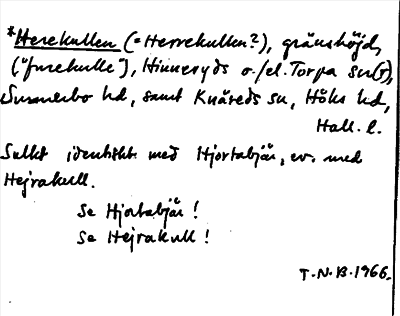 *Herekullen (= Herrekullen?), gränshöjd,
("furekulle"), Hinneryds o./el. Torpa sn(r),
Sunnerbo hd, samt Knäreds sn, Höks hd,
Hall. l.
identiskt med Hjortabjär, ev. med
Hejrakull.
Se Hjortabjär!
Se Hejrakull!
T.N.B. 1966.